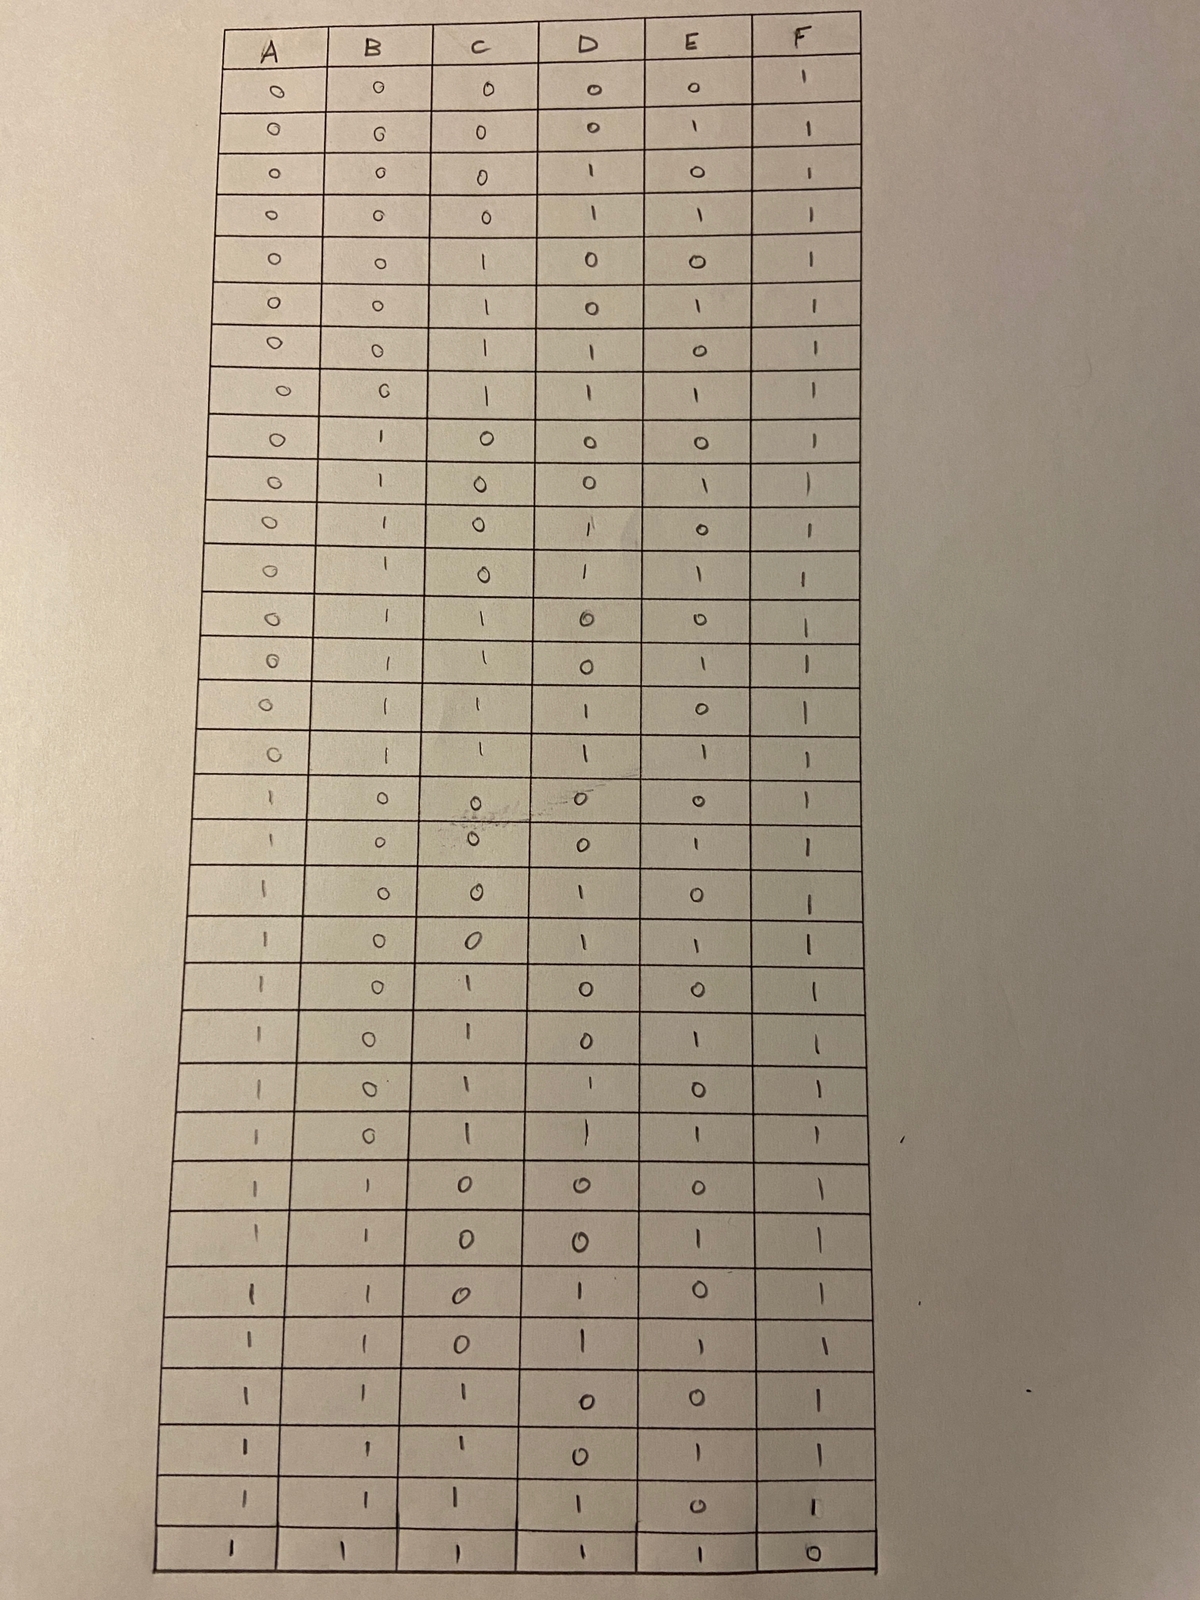 A B C D E F
0 0 0 0 0 1
0 0 0 0 1 1
0 0 0 1 0 1
0 0 0 1 1 1
0 0 1 0 0 1
0 0 1 0 1 1
0 0 1 1 0 1
0 0 1 1 1 1
0 1 0 0 0 1
0 1 0 0 1 1
0 1 0 1 0 1
0 1 0 1 1 1
0 1 1 0 0 1
0 1 1 0 1 1
0 1 1 1 0 1
0 1 1 1 1 1
1 0 0 0 0 1
1 0 0 0 1 1
1 0 0 1 0 1
1 0 0 1 1 1
1 0 1 0 0 1
1 0 1 0 1 1
1 0 1 1 0 1
1 0 1 1 1 1
1 1 0 0 0 1
1 1 0 0 1 1
1 1 0 1 0 1
1 1 0 1 1 1
1 1 1 0 0 1
1 1 1 0 1 1
1 1 1 1 0 1
1 1 1 1 1 0